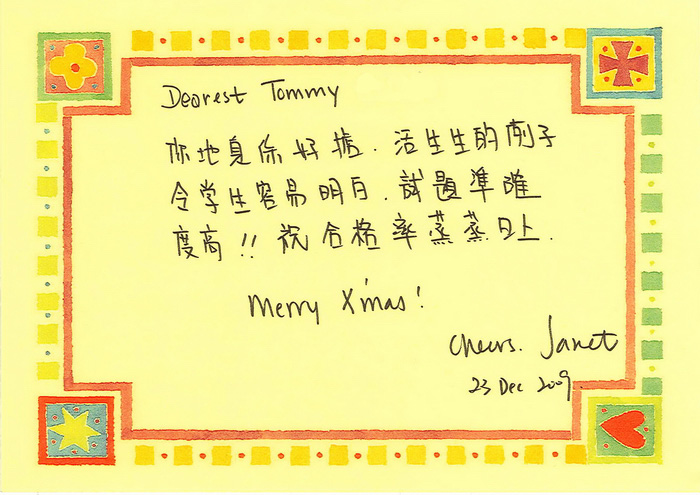 Dearest Tommy
你地真係好掂. 活生生的例子
令学生容易明白. 試題準確
度高!! 祝合格率蒸蒸日上.
Merry X'mas!
Cheers. Janet
23 Dec 2009